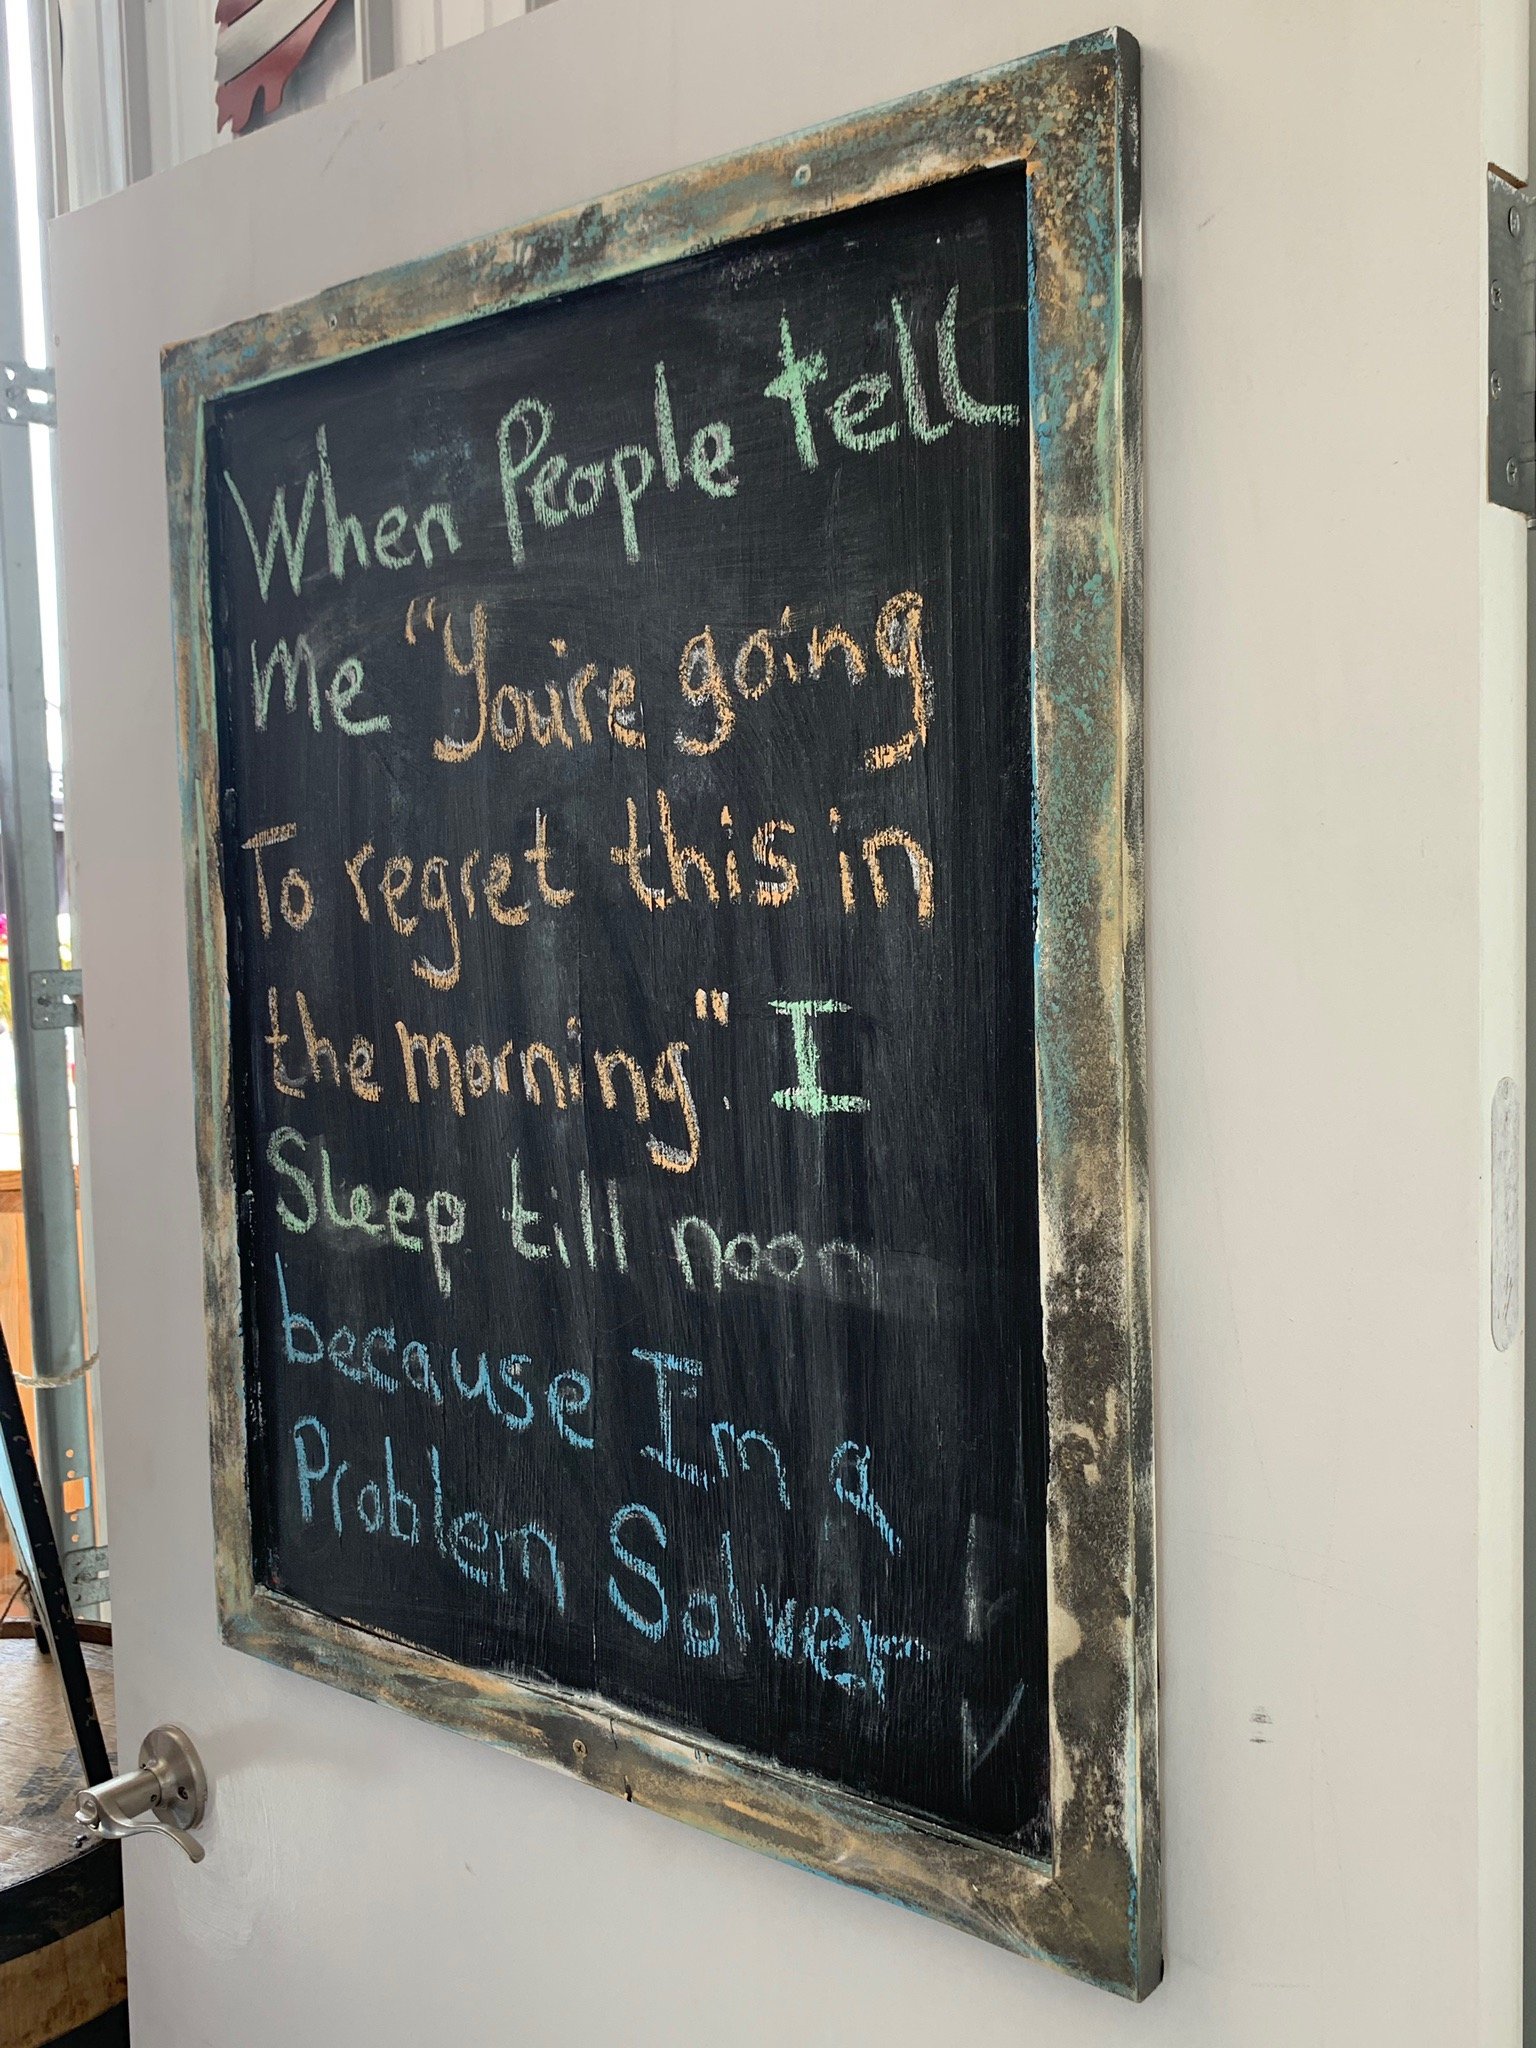 When People tell
me "You're going
To regret this in
the morning". I
Sleep till noon
because Im a
Problem Solver